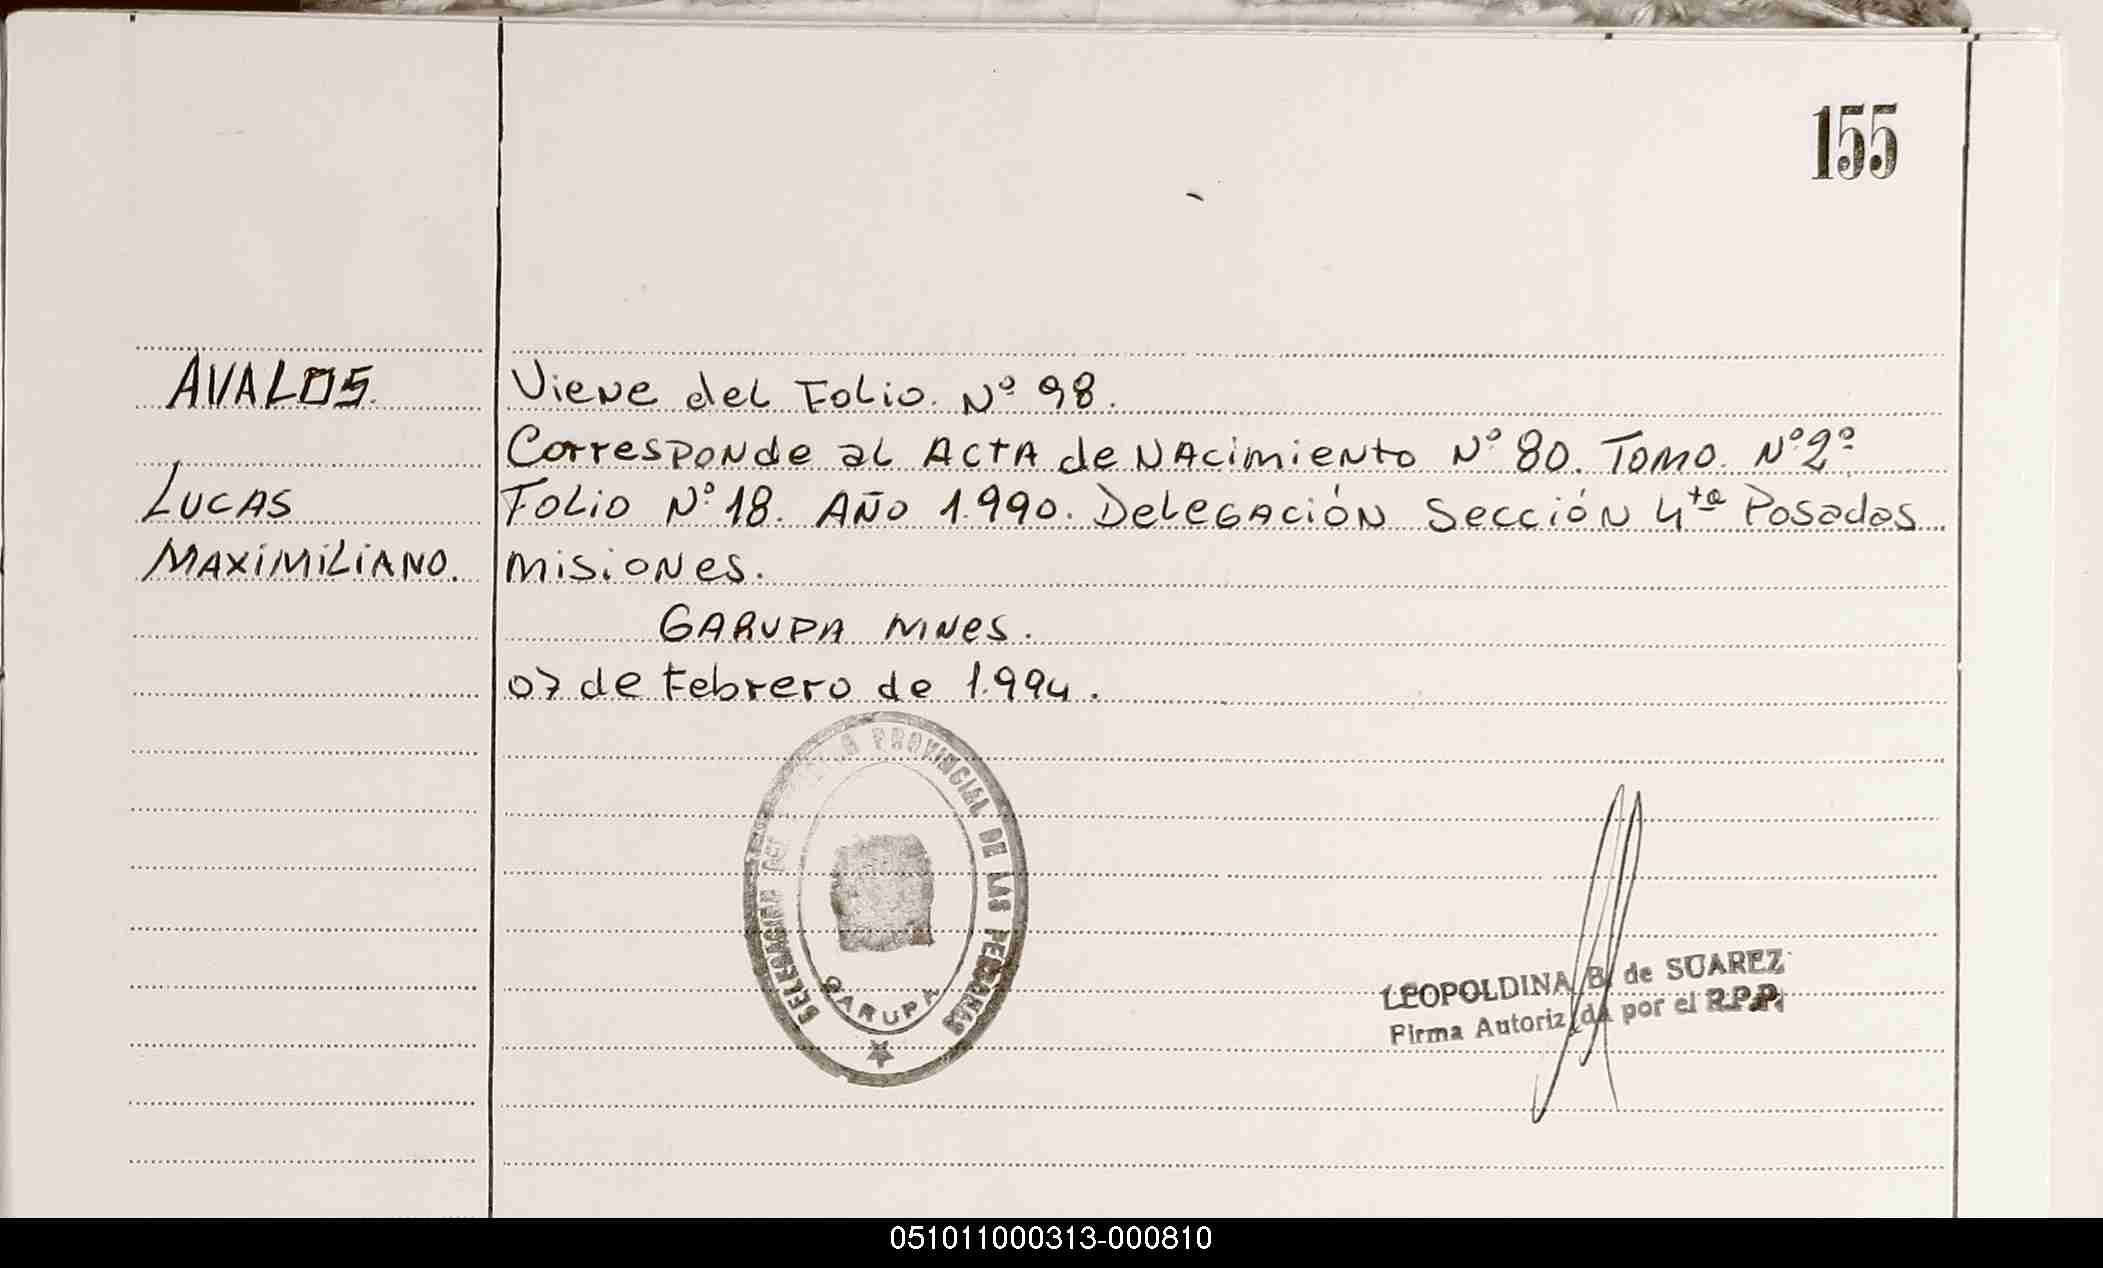 155
AVALOS.
LUCAS
MAXIMILIANO.
Viene del Folio. Nº 98.
Corresponde al Acta de Nacimiento Nº 80. Tomo. Nº 2º
Folio Nº 18. Año 1.990. Delegación Sección 4ta Posadas
Misiones.
GARUPA MNES.
07 de Febrero de 1.994.
DELEGACION DEL PROVINCIAL DE LAS PERSONAS
GARUPA
LEOPOLDINA B. de SUAREZ
Firma Autorizada por el R.P.P.
051011000313-000810